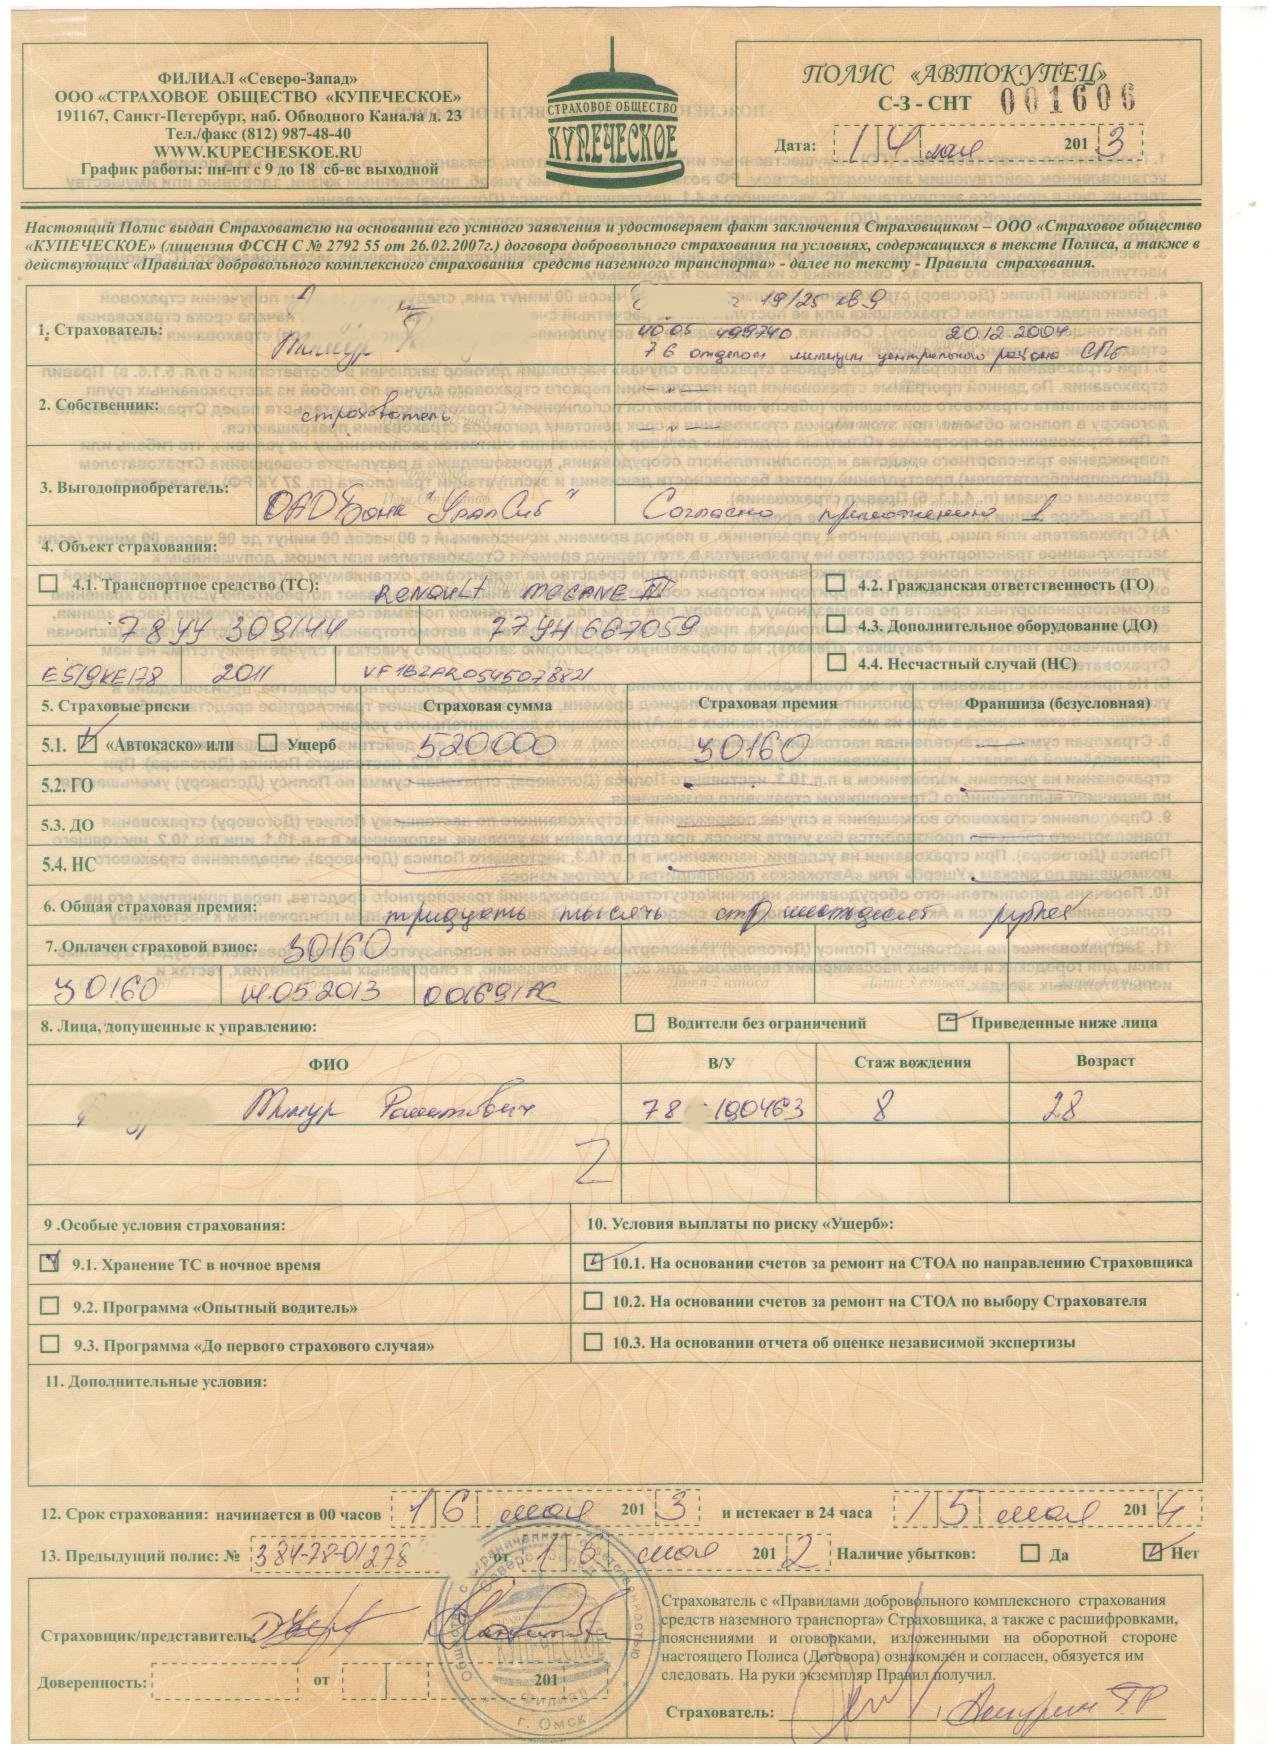 ФИЛИАЛ «Северо-Запад»
ООО «СТРАХОВОЕ ОБЩЕСТВО «КУПЕЧЕСКОЕ»
191167, Санкт-Петербург, наб. Обводного Канала д. 23
Тел./факс (812) 987-48-40
WWW.KUPECHESKOE.RU
График работы: пн-пт с 9 до 18 сб-вс выходной
СТРАХОВОЕ ОБЩЕСТВО
КУПЕЧЕСКОЕ
ПОЛИС «АВТОКУПЕЦ»
С-З - СНТ 001606
Дата: 14 мая 2013
Настоящий Полис выдан Страхователю на основании его устного заявления и удостоверяет факт заключения Страховщиком – ООО «Страховое общество
«КУПЕЧЕСКОЕ» (лицензия ФССН С № 2792 55 от 26.02.2007г.) договора добровольного страхования на условиях, содержащихся в тексте Полиса, а также в
действующих «Правилах добровольного комплексного страхования средств наземного транспорта» - далее по тексту - Правила страхования.
19/25 кв 9
1. Страхователь: Тимур
40 05 499740 20.12.2004
76 отделом милиции центрального района СПб
2. Собственник: страхователь
3. Выгодоприобретатель: ОАО Банк "УралСиб" Согласно приложению 1
4. Объект страхования:
4.1. Транспортное средство (ТС): RENAULT MEGANE III 4.2. Гражданская ответственность (ГО)
78 УУ 309144 77УН 667059 4.3. Дополнительное оборудование (ДО)
E519KE178 2011 VF1BZAR0545078821 4.4. Несчастный случай (НС)
5. Страховые риски Страховая сумма Страховая премия Франшиза (безусловная)
5.1. «Автокаско» или Ущерб 520000 30160
5.2. ГО
5.3. ДО
5.4. НС
6. Общая страховая премия: тридцать тысяч сто шестьдесят рублей
7. Оплачен страховой взнос: 30160
30160 14.05.2013 001691 АС
8. Лица, допущенные к управлению: Водители без ограничений Приведенные ниже лица
ФИО В/У Стаж вождения Возраст
Тимур Рашитович 78 190463 8 28
Z
9 .Особые условия страхования: 10. Условия выплаты по риску «Ущерб»:
9.1. Хранение ТС в ночное время 10.1. На основании счетов за ремонт на СТОА по направлению Страховщика
9.2. Программа «Опытный водитель» 10.2. На основании счетов за ремонт на СТОА по выбору Страхователя
9.3. Программа «До первого страхового случая» 10.3. На основании отчета об оценке независимой экспертизы
11. Дополнительные условия:
12. Срок страхования: начинается в 00 часов 16 мая 2013 и истекает в 24 часа 15 мая 2014
13. Предыдущий полис: № 384-78-01278 от 16 мая 2012 Наличие убытков: Да Нет
Страховщик/представитель:
Доверенность: от 201
КУПЕЧЕСКОЕ
Филиал
г. Омск
Страхователь с «Правилами добровольного комплексного страхования
средств наземного транспорта» Страховщика, а также с расшифровками,
пояснениями и оговорками, изложенными на оборотной стороне
настоящего Полиса (Договора) ознакомлен и согласен, обязуется им
следовать. На руки экземпляр Правил получил.
Страхователь: